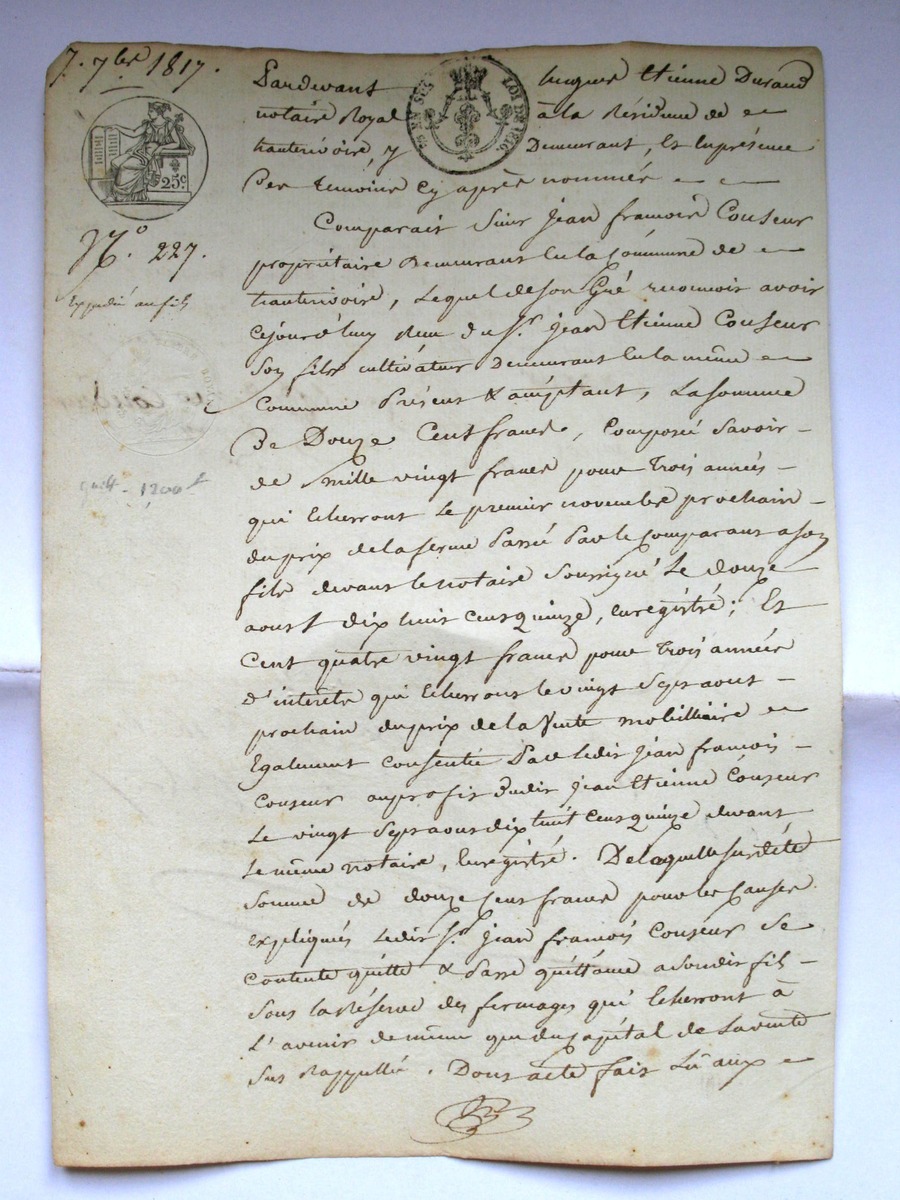 7. 7bre 1817.
25c
N°. 227.
Expédié au fils
quitt - 1200f
EN SUS
LOI DE 1816.
Pardevant hugues Etienne Durand
notaire Royal à la Résidence de
hauterivoire, y Demeurant, Et En présence
Des temoins Cy après nommés
Comparait Sieur Jean francois Couseur
proprietaire Demeurant En la Commune de
hauterivoire, Lequel de son Gré reconnoit avoir
Cejourd'huy Reçu du Sr. Jean Etienne Couseur
Son fils cultivateur Demeurant En la même
Commune Présent & acceptant, La somme
De Douze Cent francs, Composée Savoir
de mille vingt francs pour trois années
qui Echerront Le premier novembre prochain
du prix de la ferme Passée Par le Comparant a son
fils devant le notaire Soussigné Le douze
aoust dix huit cent quinze, Enregistré; Et
Cent quatre vingt francs pour trois années
D'interets qui Echerront le vingt Sept aout
prochain du prix de la Vente mobilliaire
Egalement Consentie Par ledit Jean francois
Couseur au profit Dudit Jean Etienne Couseur
Le vingt Sept aout dix huit Cent quinze devant
Le même notaire, Enregistré. De laquelle susdite
Somme de douze Cent francs pour les Causes
Expliquées Ledit Sr. Jean francois Couseur Se
Contente quitte & Passe quittance a Sondit fils
Sous la Réserve des fermages qui Echerront à
L'avenir de même que du Capital de La vente
Sus Rappellée. Dont acte fait Lu aux